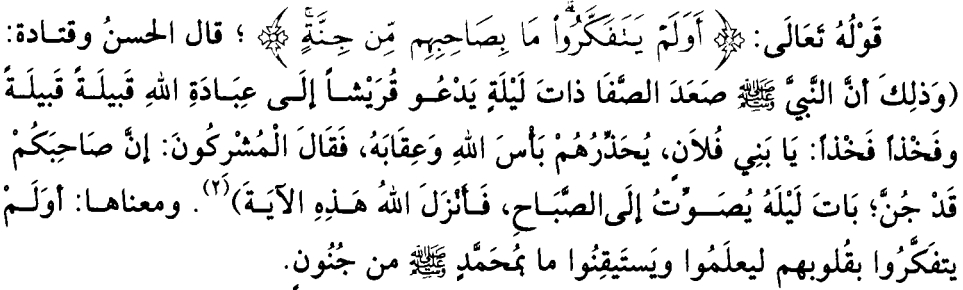 قَوْلُهُ تَعَالَى: ﴿ أَوَلَمْ يَتَفَكَّرُواْ مَا بِصَاحِبِهِم مِّن جِنَّةٍ ﴾ ؛ قال الحسنُ وقتادة:
(وَذلِكَ أنَّ النَّبِيَّ ﷺ صَعَدَ الصَّفَا ذاتَ لَيْلَةٍ يَدْعُو قُرَيْشاً إلَى عِبَادَةِ اللهِ قَبيلَةً قَبيلَةً
وفَخْذاً فَخْذاً: يَا بَنِي فُلاَنٍ، يُحَذِّرُهُمْ بَأْسَ اللهِ وَعِقَابَهُ، فَقَالَ الْمُشْرِكُونَ: إنَّ صَاحِبَكُمْ
قَدْ جُنَّ؛ بَاتَ لَيْلَهُ يُصَوِّتُ إلَى الصَّبَاحِ، فَأَنْزَلَ اللهُ هَذِهِ الآيَةَ)(٢). ومعناها: أوَلَمْ
يتفَكَّرُوا بقُلوبهم ليعلَمُوا ويَستَيقِنُوا ما بمُحَمَّدٍ ﷺ من جُنُونٍ.